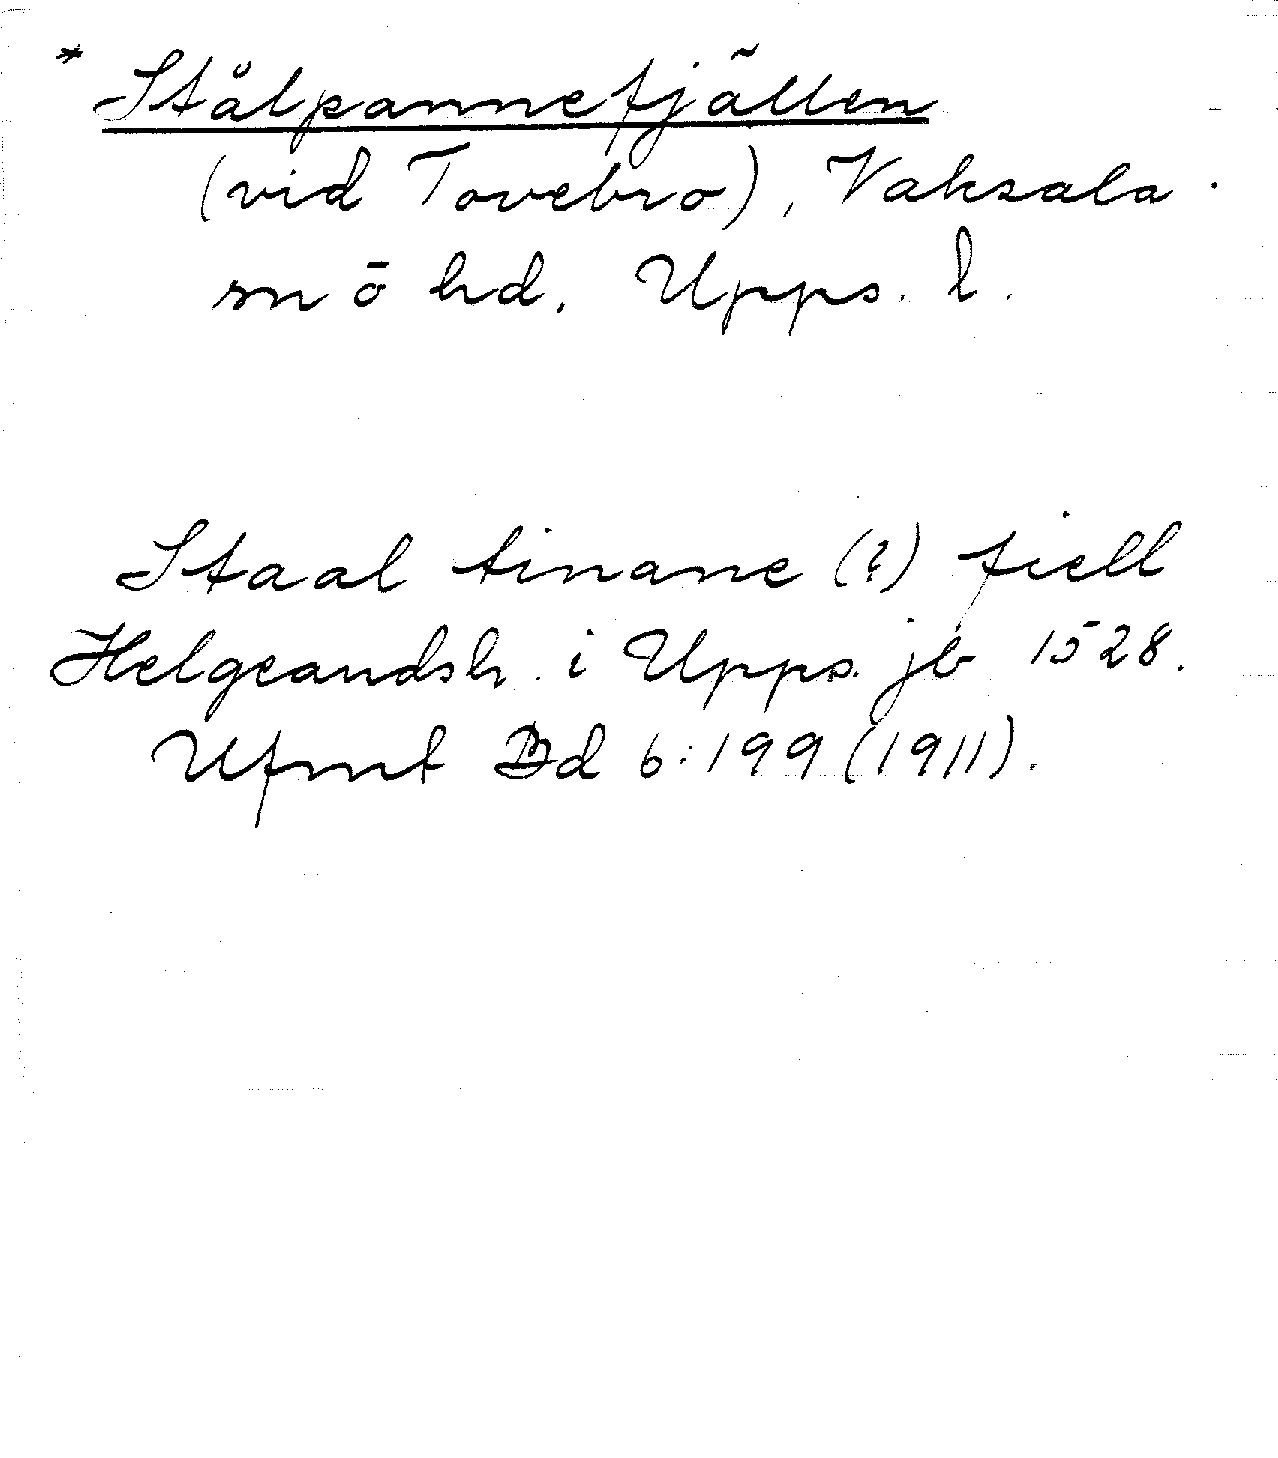 * Stålpannefjällen
(vid Tovebro), Vaksala
sn ō hd, Upps. l.
Staal tinane (?) fiell
Helgeandsh. i Upps. jb 1528.
Ufmt Bd 6:199 (1911).